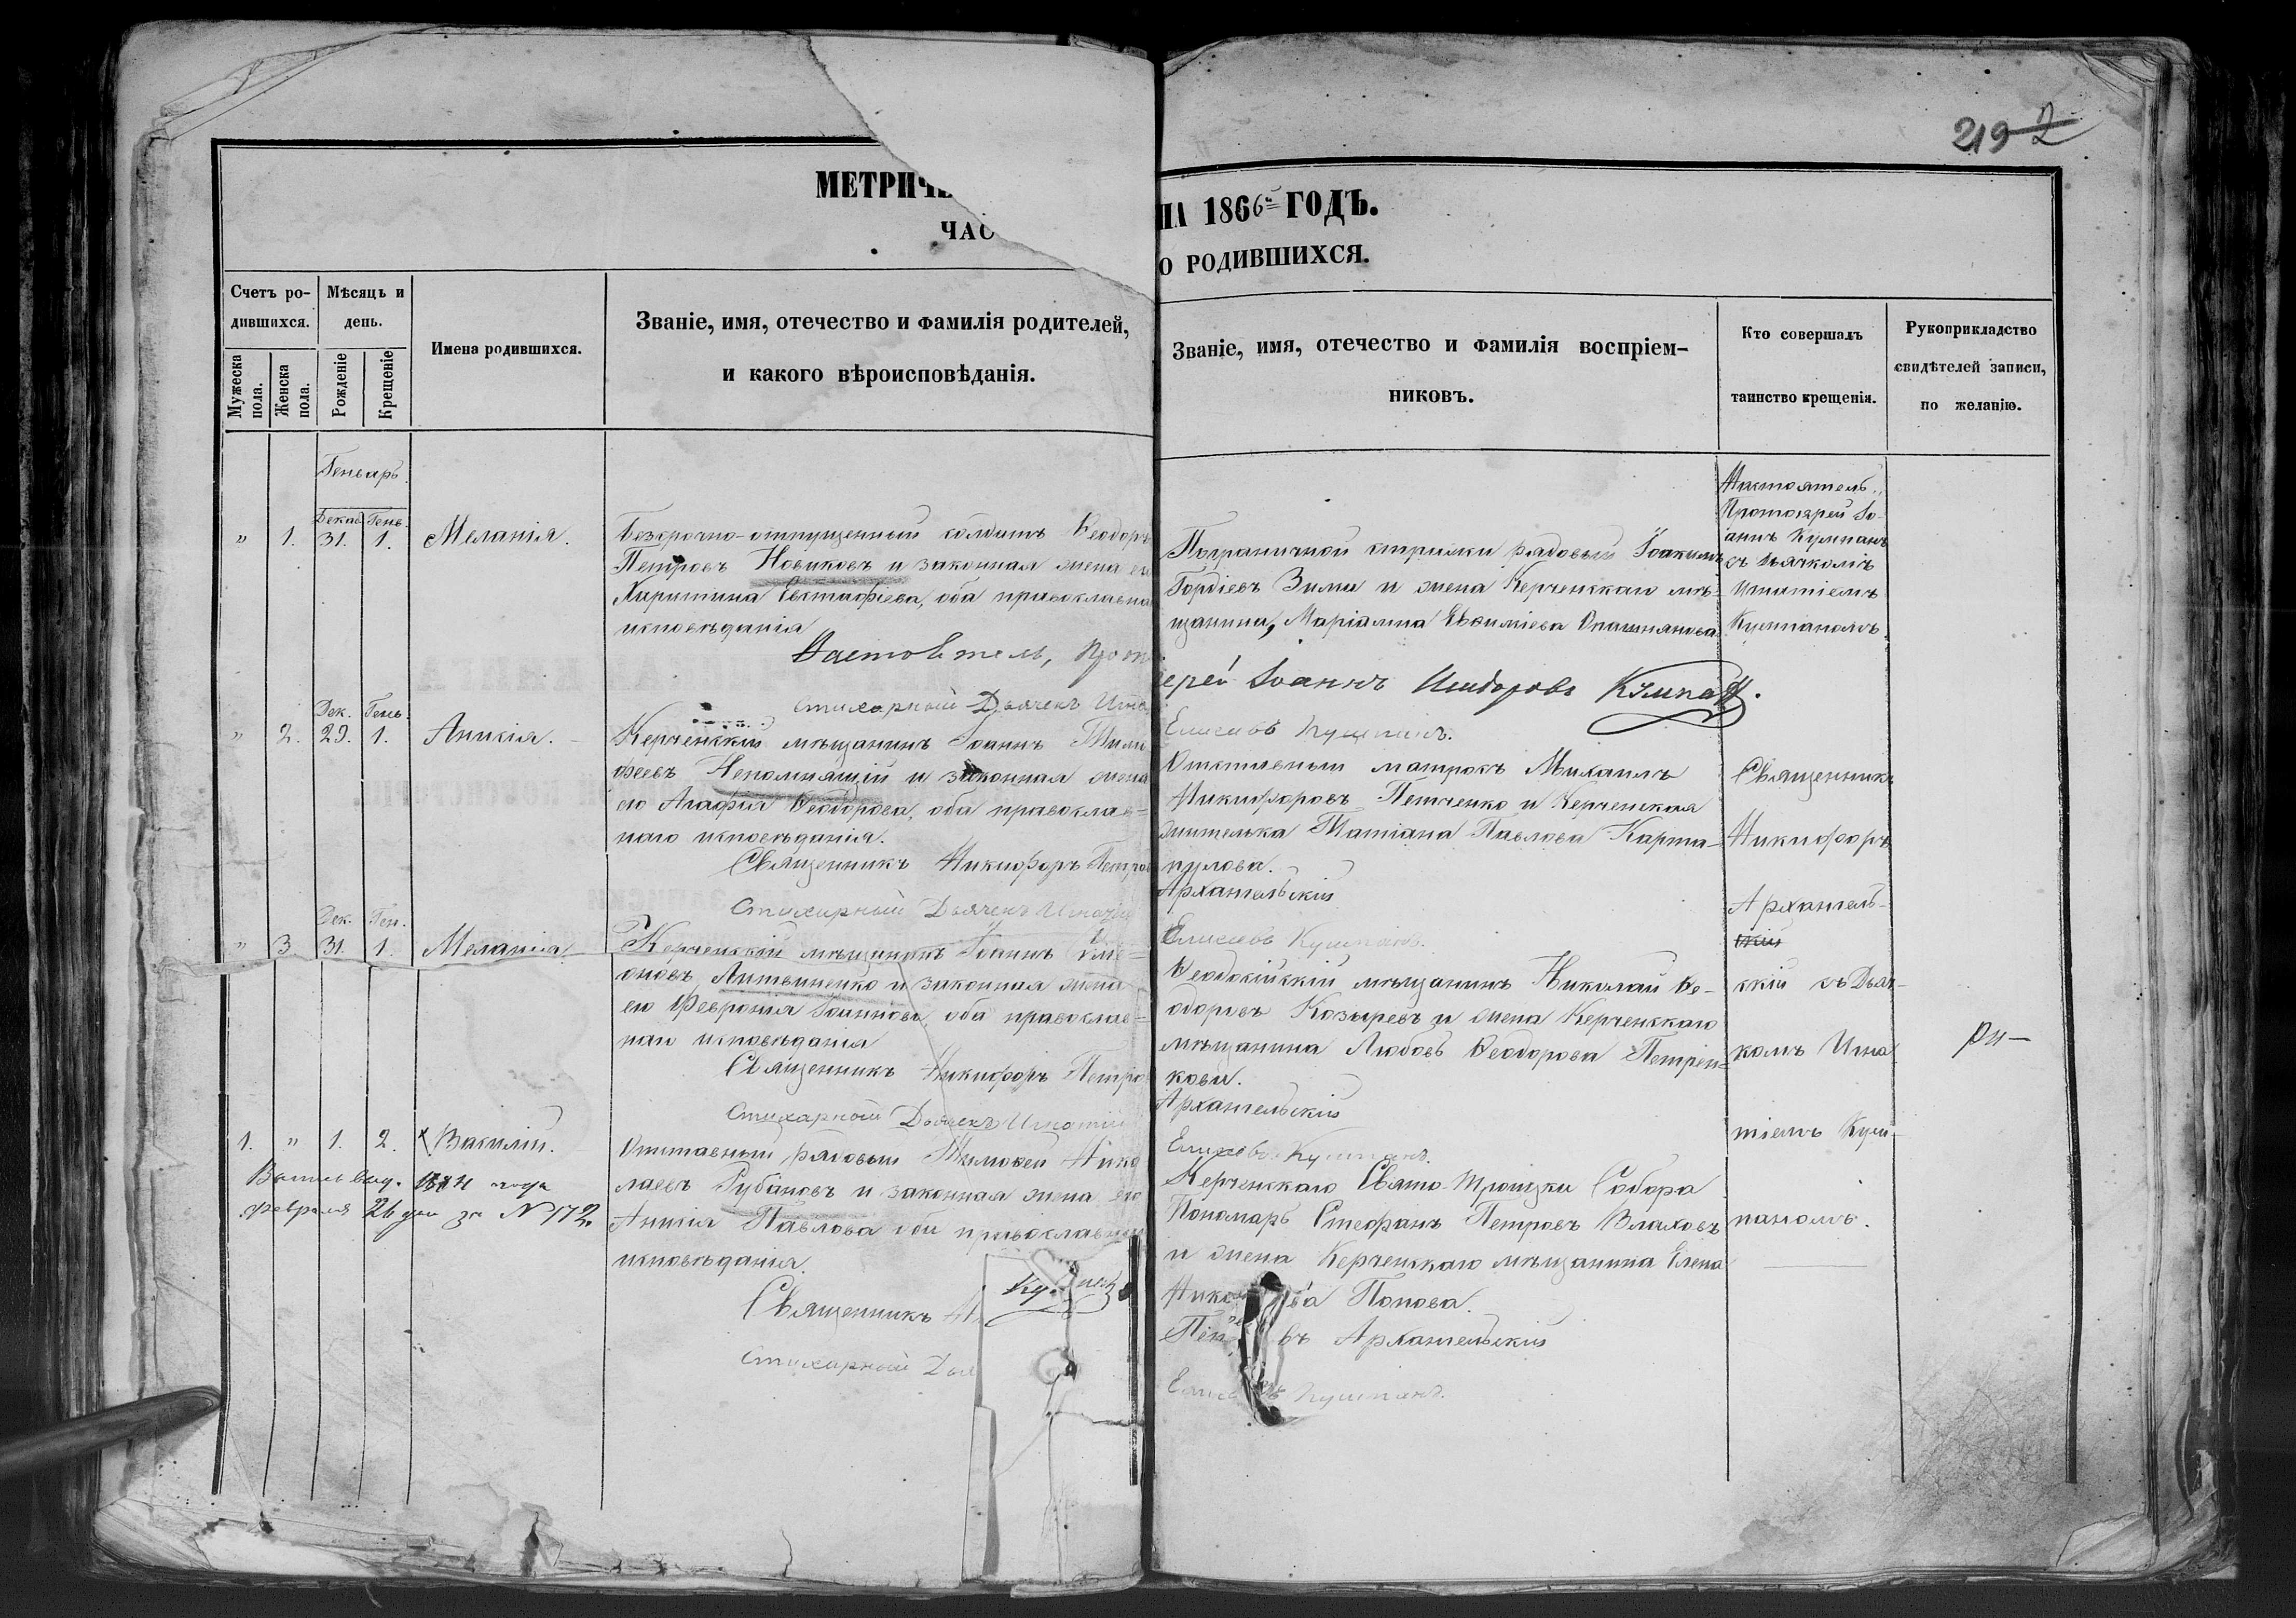 219 2
МЕТРИЧЕ
НА 1866 ГОДЪ.
ЧАС
О РОДИВШИХСЯ.
Счетъ ро-
дившихся.
Мѣсяцъ и
день.
Мужеска
пола.
Женска
пола.
Рожденіе
Крещеніе
Имена родившихся.
Званіе, имя, отечество и фамилія родителей,
и какого вѣроисповѣданія.
Званіе, имя, отечество и фамилія воспріем-
никовъ.
Кто совершалъ
таинство крещенія.
Рукоприкладство
свидѣтелей записи,
по желанію.
Генварь.
Декаб. Генв.
" 1. 31. 1. Меланія.
Безсрочно-отпущенный солдатъ Ѳеодоръ
Петровъ Новиковъ и законная жена его
Харитина Евстафіева, оба православна
исповѣданія
Настоятель, Прото
Пограничной стражи рядовый Іоакимъ
Гордіевъ Зима и жена Керченскаго мѣ-
щанина, Маріамна Евѳиміева
ерей Іоаннъ Исидоровъ Кумпан.
Настоятель,
Протоіерей Іо-
аннъ Кумпанъ
съ дьячкомъ
Игнатіемъ
Кумпаномъ.
Стихарный Дьячекъ Игна
Елисеевъ Кумпанъ.
Дек. Генв.
" 2. 29. 1. Анисія.
Керченскій мѣщанинъ Іоаннъ Тимо
феевъ Непомнящій и законная жена
его Агафія Ѳеодорова, оба православ-
наго исповѣданія.
Священникъ Никифоръ Петров
Стихарный Дьячекъ Игнатій
Отставный матросъ Михаилъ
Никифоровъ Петченко и Керченская
жителька Татіана Павлова Карта-
пулова.
Архангельскій
Елисеевъ Кумпанъ.
Священникъ
Никифоръ
Архангель-
скій
скій съ Дьяч-
комъ Игна
тіемъ Кум-
паномъ.
Дек. Ген.
" 3. 31. 1. Меланія.
Керченскій мѣщанинъ Іоаннъ Симе-
оновъ Литвиненко и законная жена
его Февронія Іоаннова, оба православ-
наго исповѣданія
Священникъ Никифоръ Петро
Стихарный Дьячекъ Игнатій
Ѳеодосійскій мѣщанинъ Николай Ѳе-
одоровъ Козыревъ и жена Керченскаго
мѣщанина Любовь Ѳеодорова Петрен-
кова.
Архангельскій
Елисеевъ Кумпанъ.
1. " 1. 2. х Василій.
Выпись выд. года
февраля 26 дня за N 172.
Отставный рядовый Тимоѳей Нико
лаевъ Губановъ и законная жена его
Анисія Павлова оба православнаго
исповѣданія.
Священникъ Н
Стихарный Дья
Керченскаго Свято-Троицка Собора
Пономарь Стефанъ Петровъ Влаховъ
и жена Керченскаго мѣщанина Елена
Никола ва Попова.
Пет въ Архангельскій
Елисе въ Кумпанъ.